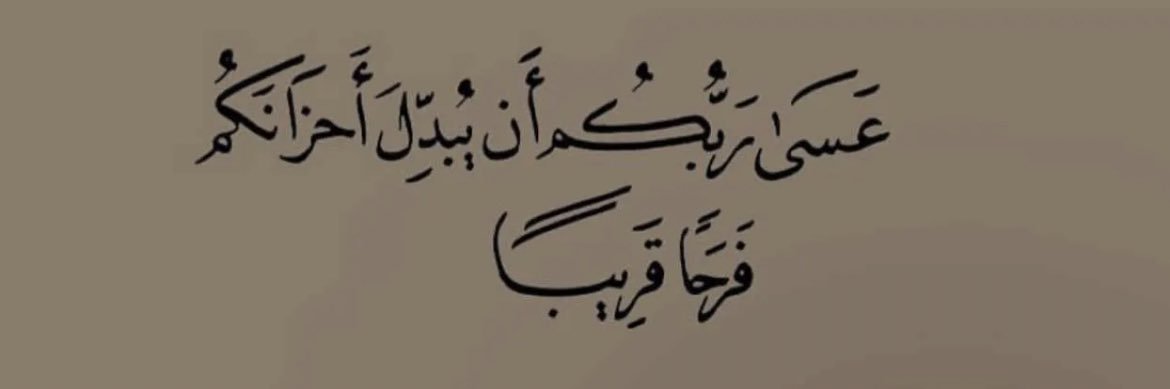 عَسَىٰ رَبُّكُم أَن يُبدِّلَ أَحزَانَكُم
فَرَحًا قَرِيبًا